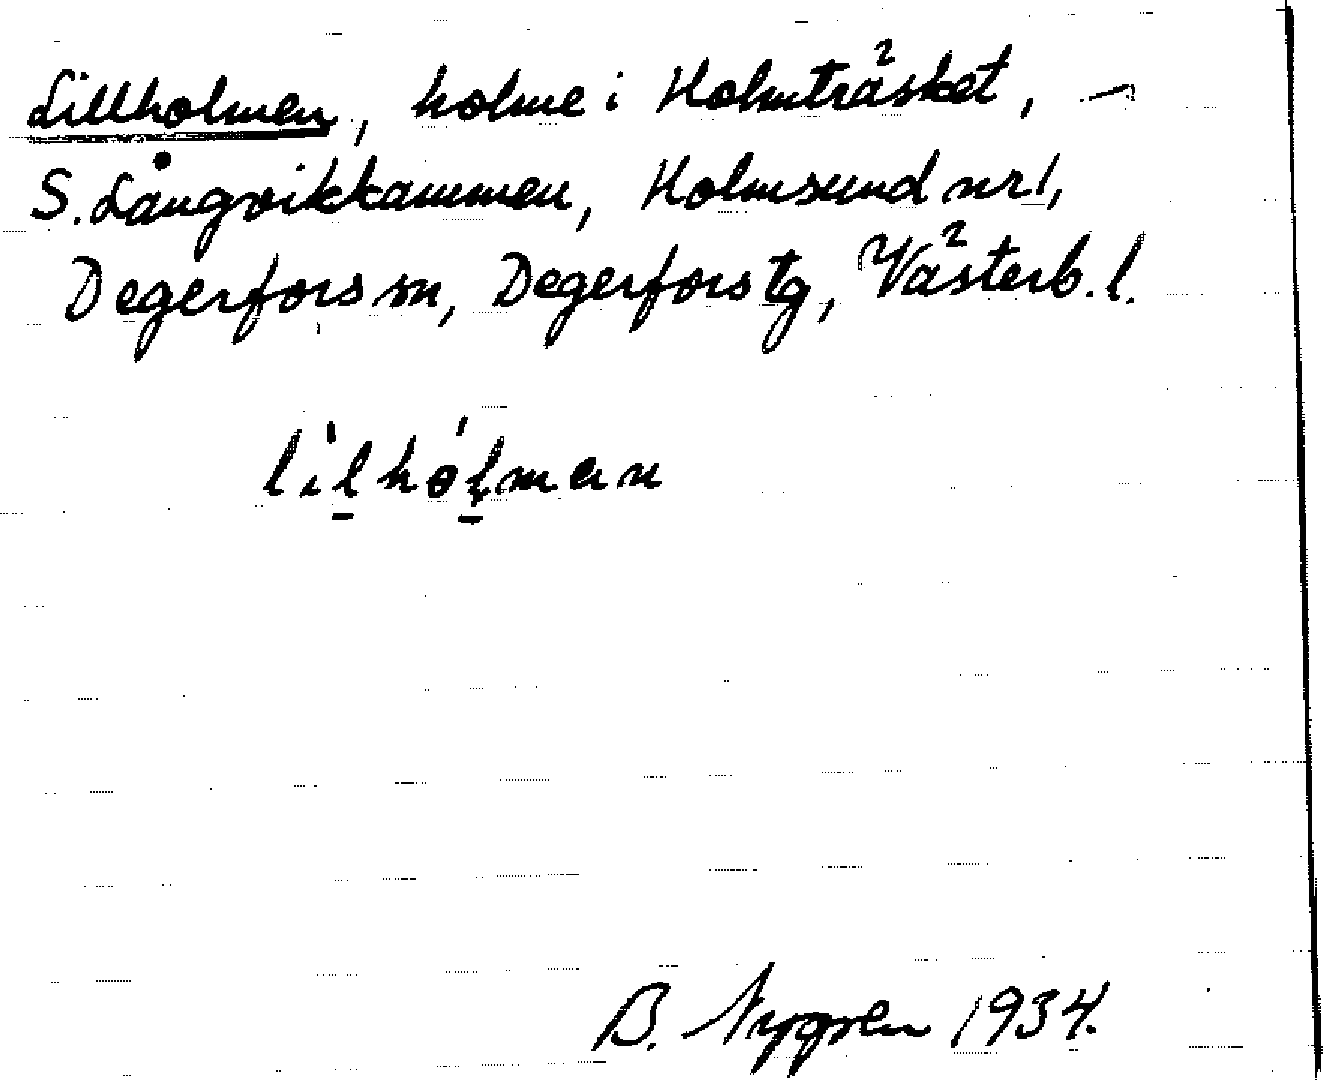 Lillholmen, holme i Holmträsket,
S. Långvikkammen, Holmsund nr 1,
Degerfors sn, Degerfors tg, Västerb. l.
lìlhólmɐn
B. Nygren 1934.